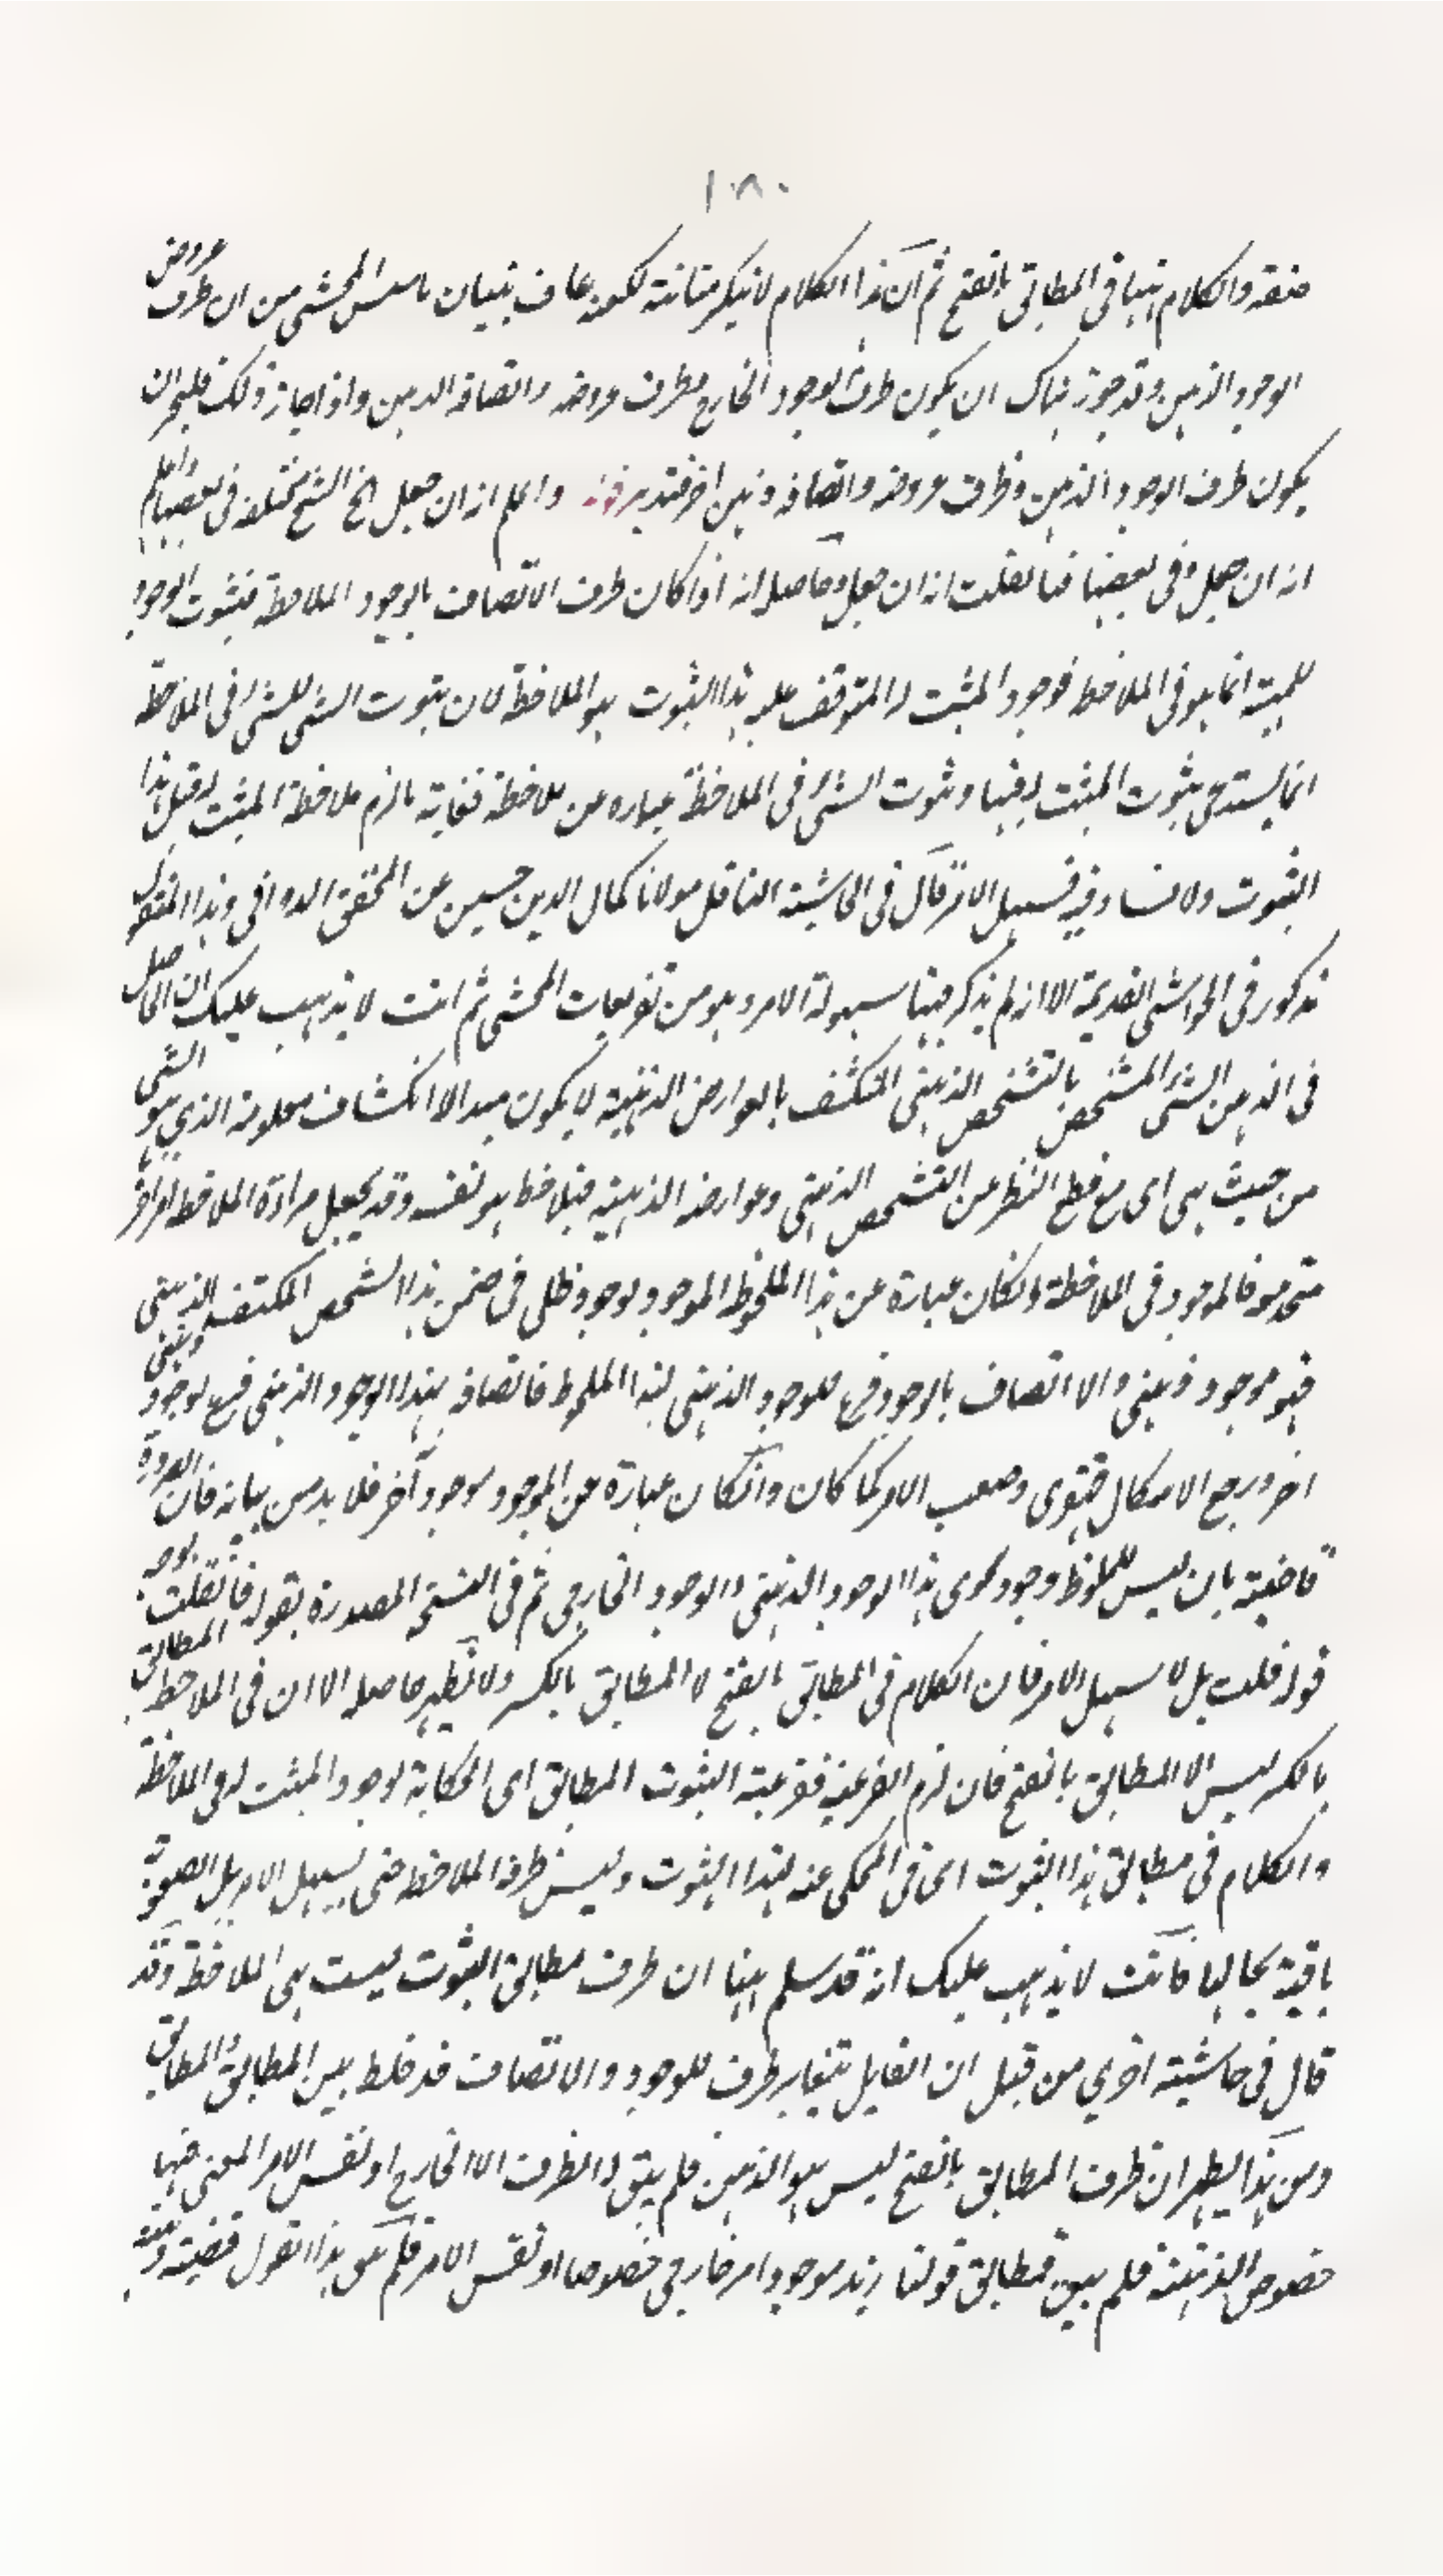 ١٨٠
والكلام ههنا فى المطابق بالفتح ثم ان هذا الكلام لا ينكر متانته لكونه بنيان المحشى من ان ظرف عروض
الوجود الذهن وقد جوز هناك ان يكون ظرف الوجود الخارج وظرف عروضه واتصافه الذهن واذا جاز ذلك فليجز ان
يكون ظرف الوجود الذهن وظرف عروضه واتصافه ذهن اخر فتدبر قوله واعلم انه ان جعل الخ النسخ مختلفة فى بعضها واعلم
انه ان جعل وفى بعضها فانقلت انه ان جعل وحاصله انه اذا كان ظرف الاتصاف بالوجود الملاحظة فثبوت الوجود
للمهية انما هو فى الملاحظة فوجود المثبت له المتوقف عليه هذا الثبوت هو الملاحظة لان ثبوت الشى للشى فى الملاحظة
انما يستدعى ثبوت المثبت له فيها وثبوت الشئ فى الملاحظة عبارة عن ملاحظة فغاية ما لزم ملاحظة المثبت له قبل هذا
الثبوت ولا فساد فيه فسهل الامر قال فى الحاشية الناقل مولانا كمال الدين حسين عن المحقق الدوانى وهذا المنقول
مذكور فى الحواشى القديمة الا انه لم يذكر فيها سهولة الامر وهو من تفريعات المحشى ثم انت لا يذهب عليك ان الحاصل
فى الذهن الشئ المشخص بالتشخص الذهنى المكتنف بالعوارض الذهنية لا يكون مبدا الانكشاف معلومة الذي هو الشى
من حيث هى اى مع قطع النظر عن التشخص الذهنى وعوارضه الذهنية فيلاحظ هو نفسه وقد يجعل مراءة الملاحظة
فالموجود فى الملاحظة ان كان عبارة عن هذا الملحوظ الموجود بوجود ظلى فى ضمن هذا الشخص المكتنف الذهنى
فهو موجود ذهنى والاتصاف بالوجود فرع للوجود الذهنى لهذا الملحوظ فاتصافه بهذا الوجود الذهنى فرع لوجود ذهنى
اخر ورجع الاشكال وصعب الامر كما كان وان كان عبارة عن الموجود بوجود آخر فلا بد من بيانه فان الضرورة
قاضية بان ليس للملحوظ وجود سوى هذا الوجود الذهنى والوجود الخارجى ثم فى النسخة المصدرة بقوله فانقلت يوجد
قوله قلت بل لا سهل الامر فان الكلام فى المطابق بالفتح لا المطابق بالكسر ولا يظهر حاصله الا ان فى الملاحظة المطابق
بالكسر ليس الا المطابق بالفتح فان لزم الفرعية ففرعية الثبوت المطابق اى الحكاية لوجود المثبت له فى الملاحظة
والكلام فى مطابق هذا الثبوت اى فى المحكى عنه لهذا الثبوت وليس ظرفه الملاحظة حتى يسهل الامر بل الصعوبة
باقية بحالها فانت لا يذهب عليك انه قد سلم ههنا ان ظرف مطابق الثبوت ليست هى الملاحظة وقد
قال فى حاشية اخرى من قبل ان القايل بتغاير ظرف الوجود والاتصاف قد خلط بين المطابق والمطابق
ومن هذا يظهر ان ظرف المطابق بالفتح ليس هو الذهن فلم يبق له الظرف الا الخارج او نفس الامر المعنى فيها
خصوص الذهنية فلم يبق فمطابق قولنا زيد موجود امر خارجى خصوصا او نفس الامر فلم يكن هذا القول قضية ذهنية